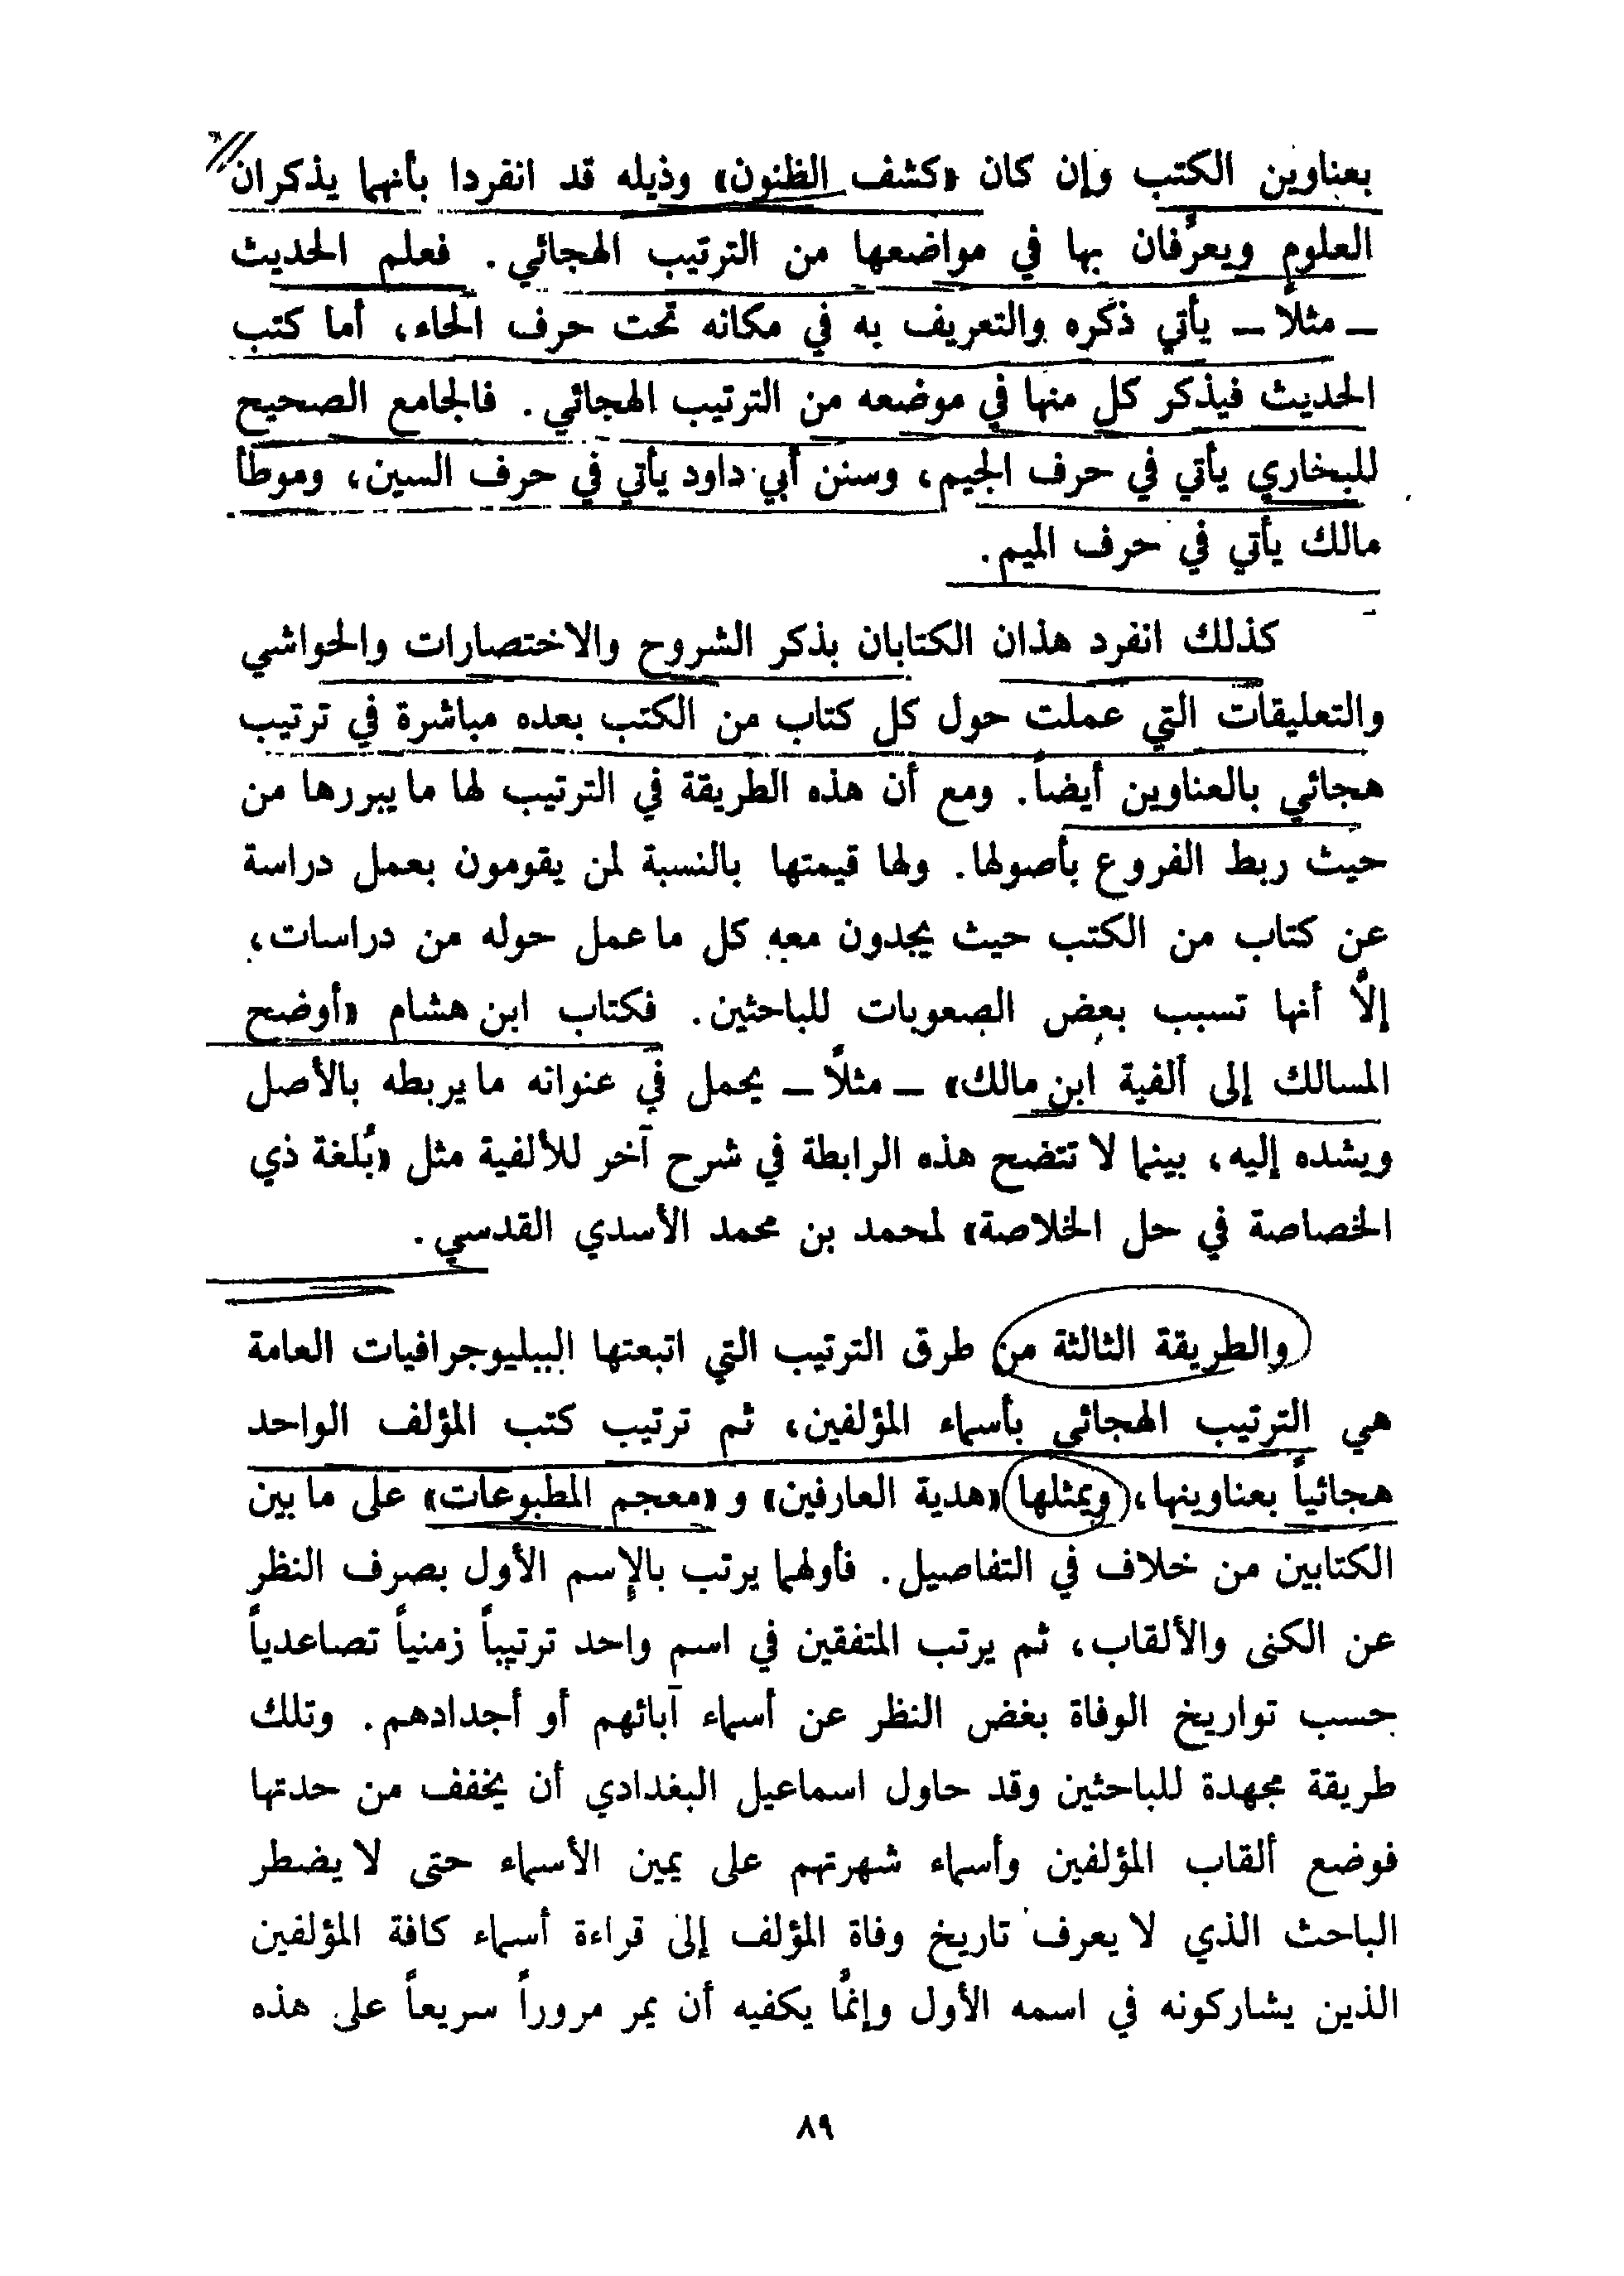 بعناوين الكتب وإن كان «كشف الظنون» وذيله قد انفردا بأنهما يذكران
العلوم ويعرِّفان بها في مواضعها من الترتيب الهجائي. فعلم الحديث
ــ مثلاً ــ يأتي ذكره والتعريف به في مكانه تحت حرف الحاء، أما كتب
الحديث فيذكر كل منها في موضعه من الترتيب الهجائي. فالجامع الصحيح
للبخاري يأتي في حرف الجيم، وسنن أبي داود يأتي في حرف السين، وموطأ
مالك يأتي في حرف الميم.
كذلك انفرد هذان الكتابان بذكر الشروح والاختصارات والحواشي
والتعليقات التي عملت حول كل كتاب من الكتب بعده مباشرة في ترتيب
هجائي بالعناوين أيضاً. ومع أن هذه الطريقة في الترتيب لها ما يبررها من
حيث ربط الفروع بأصولها. ولها قيمتها بالنسبة لمن يقومون بعمل دراسة
عن كتاب من الكتب حيث يجدون معه كل ما عمل حوله من دراسات،
إلاَّ أنها تسبب بعض الصعوبات للباحثين. فكتاب ابن هشام «أوضح
المسالك إلى ألفية ابن مالك» ــ مثلاً ــ يحمل في عنوانه ما يربطه بالأصل
ويشده إليه، بينما لا تتضح هذه الرابطة في شرح آخر للألفية مثل «بُلغة ذي
الخصاصة في حل الخلاصة» لمحمد بن محمد الأسدي القدسي.
والطريقة الثالثة من طرق الترتيب التي اتبعتها الببليوجرافيات العامة
هي الترتيب الهجائي بأسماء المؤلفين، ثم ترتيب كتب المؤلف الواحد
هجائياً بعناوينها، ويمثلها «هدية العارفين» و «معجم المطبوعات» على ما بين
الكتابين من خلاف في التفاصيل. فأولهما يرتب بالإسم الأول بصرف النظر
عن الكنى والألقاب، ثم يرتب المتفقين في اسم واحد ترتيباً زمنياً تصاعدياً
حسب تواريخ الوفاة بغض النظر عن أسماء آبائهم أو أجدادهم. وتلك
طريقة مجهدة للباحثين وقد حاول اسماعيل البغدادي أن يخفف من حدتها
فوضع ألقاب المؤلفين وأسماء شهرتهم على يمين الأسماء حتى لا يضطر
الباحث الذي لا يعرف تاريخ وفاة المؤلف إلى قراءة أسماء كافة المؤلفين
الذين يشاركونه في اسمه الأول وإنمَّا يكفيه أن يمر مروراً سريعاً على هذه
٨٩